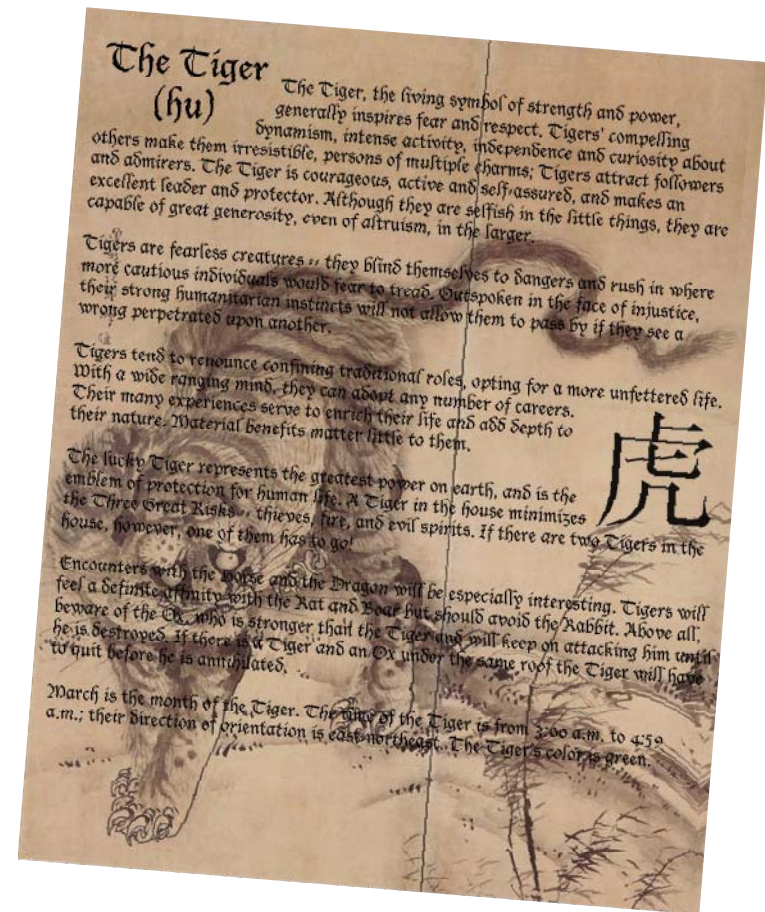 The Tiger
(hu)
The Tiger, the living symbol of strength and power,
generally inspires fear and respect. Tigers' compelling
dynamism, intense activity, independence and curiosity about
others make them irresistible, persons of multiple charms; Tigers attract followers
and admirers. The Tiger is courageous, active and self-assured, and makes an
excellent leader and protector. Although they are selfish in the little things, they are
capable of great generosity, even of altruism, in the larger.
Tigers are fearless creatures -- they blind themselves to dangers and rush in where
more cautious individuals would fear to tread. Outspoken in the face of injustice,
their strong humanitarian instincts will not allow them to pass by if they see a
wrong perpetrated upon another.
Tigers tend to renounce confining traditional roles, opting for a more unfettered life.
With a wide ranging mind, they can adopt any number of careers.
Their many experiences serve to enrich their life and add depth to
their nature. Material benefits matter little to them.
虎
The lucky Tiger represents the greatest power on earth, and is the
emblem of protection for human life. A Tiger in the house minimizes
the Three Great Risks -- thieves, fire, and evil spirits. If there are two Tigers in the
house, however, one of them has to go!
Encounters with the Horse and the Dragon will be especially interesting. Tigers will
feel a definite affinity with the Rat and Boar but should avoid the Rabbit. Above all,
beware of the Ox, who is stronger than the Tiger and will keep on attacking him until
he is destroyed. If there is a Tiger and an Ox under the same roof the Tiger will have
to quit before he is annihilated.
March is the month of the Tiger. The time of the Tiger is from 3:00 a.m. to 4:59
a.m.; their direction of orientation is east-northeast. The Tiger's color is green.